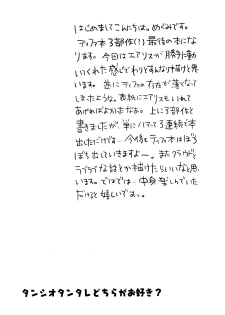 はじめましてこんちは。めぐみです。
ティファ本3部作(?)最後の本にな
ります。今回はエアリスが勝手に動
いてくれた感じでわりとすんなり描けたと思
います。逆にティファの存在が薄くなって
しまったような。表紙にエアリスもいれて
あげればよかったかなぁ。上に3部作と
書きましたが、単にハマって3連続で本
出しただけです…今後もティファ本はぼろ
ぼろ出していきますよー。またクラウドと
ラブラブな話とか描けたらいいなと思い
います。ではでは、中身楽しんでいた
だけると嬉しいです。
タンシオタンタレどちらがお好き?